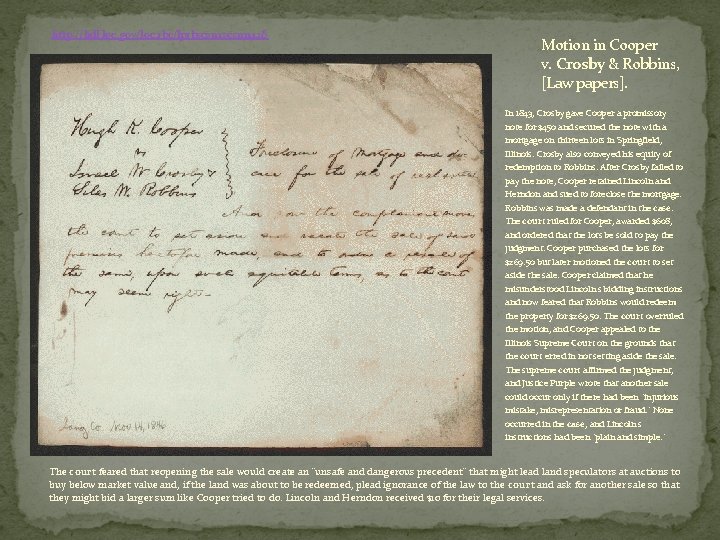 Motion in Cooper
v. Crosby & Robbins,
[Law papers].
Hugh K. Cooper
vs
Israel W Crosby &
Siles W. Robbins
Foreclosure of Mortgage and de-
cree for the sale of real estate
And now the complainant moves
the court to set aside and vacate the sale of said
premises heretofore made, and to order a resale of
the same, upon such equitable terms, as to the court
may seem right—
Sang. Co. Nov. 14, 1846
In 1843, Crosby gave Cooper a promissory
note for $450 and secured the note with a
mortgage on thirteen lots in Springfield,
Illinois. Crosby also conveyed his equity of
redemption to Robbins. After Crosby failed to
pay the note, Cooper retained Lincoln and
Herndon and sued to foreclose the mortgage.
Robbins was made a defendant in the case.
The court ruled for Cooper, awarded $608,
and ordered that the lots be sold to pay the
judgment. Cooper purchased the lots for
$269.50 but later motioned the court to set
aside the sale. Cooper claimed that he
misunderstood Lincoln's bidding instructions
and now feared that Robbins would redeem
the property for $269.50. The court overruled
the motion, and Cooper appealed to the
Illinois Supreme Court on the grounds that
the court erred in not setting aside the sale.
The supreme court affirmed the judgment,
and Justice Purple wrote that another sale
could occur only if there had been "injurious
mistake, misrepresentation or fraud." None
occurred in the case, and Lincoln's
instructions had been "plain and simple."
The court feared that reopening the sale would create an "unsafe and dangerous precedent" that might lead land speculators at auctions to
buy below market value and, if the land was about to be redeemed, plead ignorance of the law to the court and ask for another sale so that
they might bid a larger sum like Cooper tried to do. Lincoln and Herndon received $10 for their legal services.